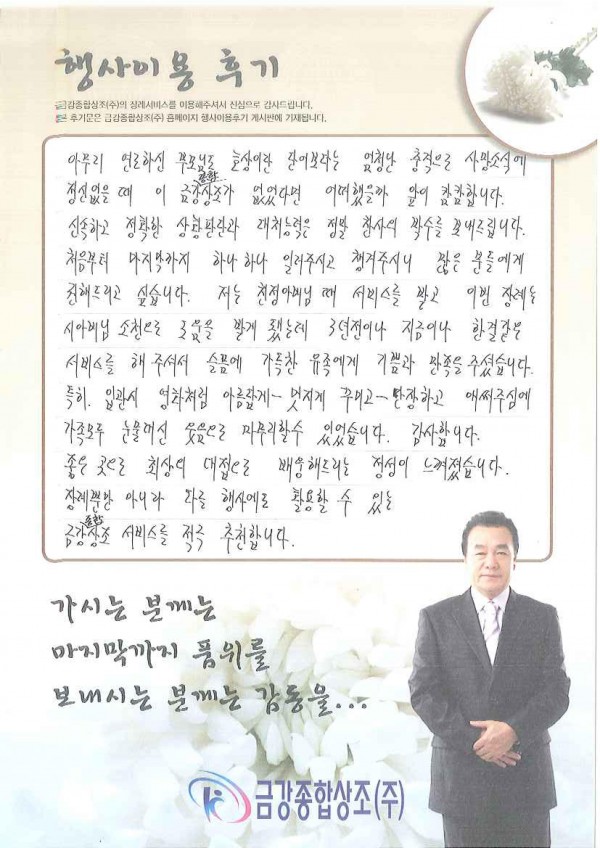 행사이용 후기
금강종합상조(주)의 장례서비스를 이용해주셔서 진심으로 감사드립니다.
후기문은 금강종합상조(주) 홈페이지 행사이용후기 게시판에 기재됩니다.
아무리 연로하신 부모님도 초상이란 단어보다는 엄청난 충격으로 사망소식에
정신없을 때 이 금강종합상조가 없었다면 어떠했을까 앞이 캄캄합니다.
신속하고 정확한 상황판단과 대처능력은 정말 감사의 박수를 보내드립니다.
처음부터 마지막까지 하나하나 일러주시고 챙겨주시니 많은 분들에게
권해드리고 싶습니다. 저는 친정아버님 때 서비스를 받고 이번 장례는
시아버님 소천으로 도움을 받게 됐는데 3년전이나 지금이나 한결같은
서비스를 해 주셔서 슬픔에 가득찬 유족에게 기쁨과 만족을 주셨습니다.
특히, 입관시 영화처럼 아름답게~ 멋지게 꾸미고~ 단장하고 애써주심에
가족모두 눈물대신 웃음으로 마무리할수 있었습니다. 감사합니다.
좋은 곳으로 최상의 대접으로 배웅해드리는 정성이 느껴졌습니다.
장례뿐만 아니라 다른 행사에도 활용할 수 있는
금강종합상조 서비스를 적극 추천합니다.
가시는 분께는
마지막까지 품위를
보내시는 분께는 감동을...
금강종합상조(주)